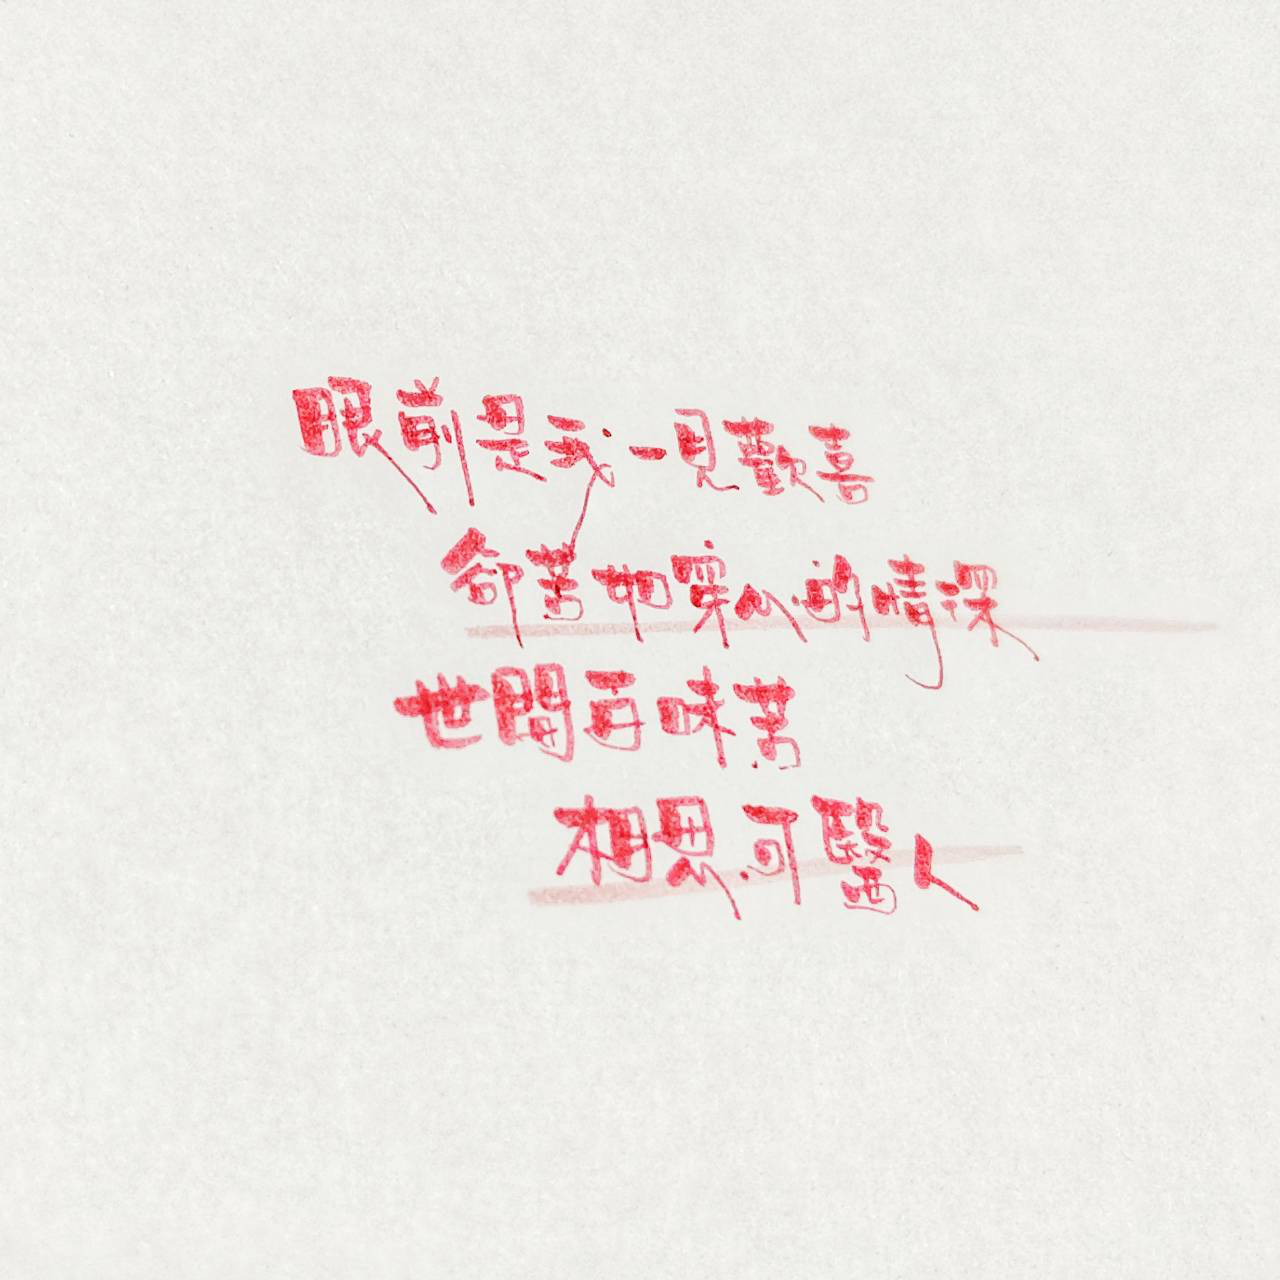 眼前是我一見歡喜
卻苦如穿心的情深
世間百味苦
相思可醫人